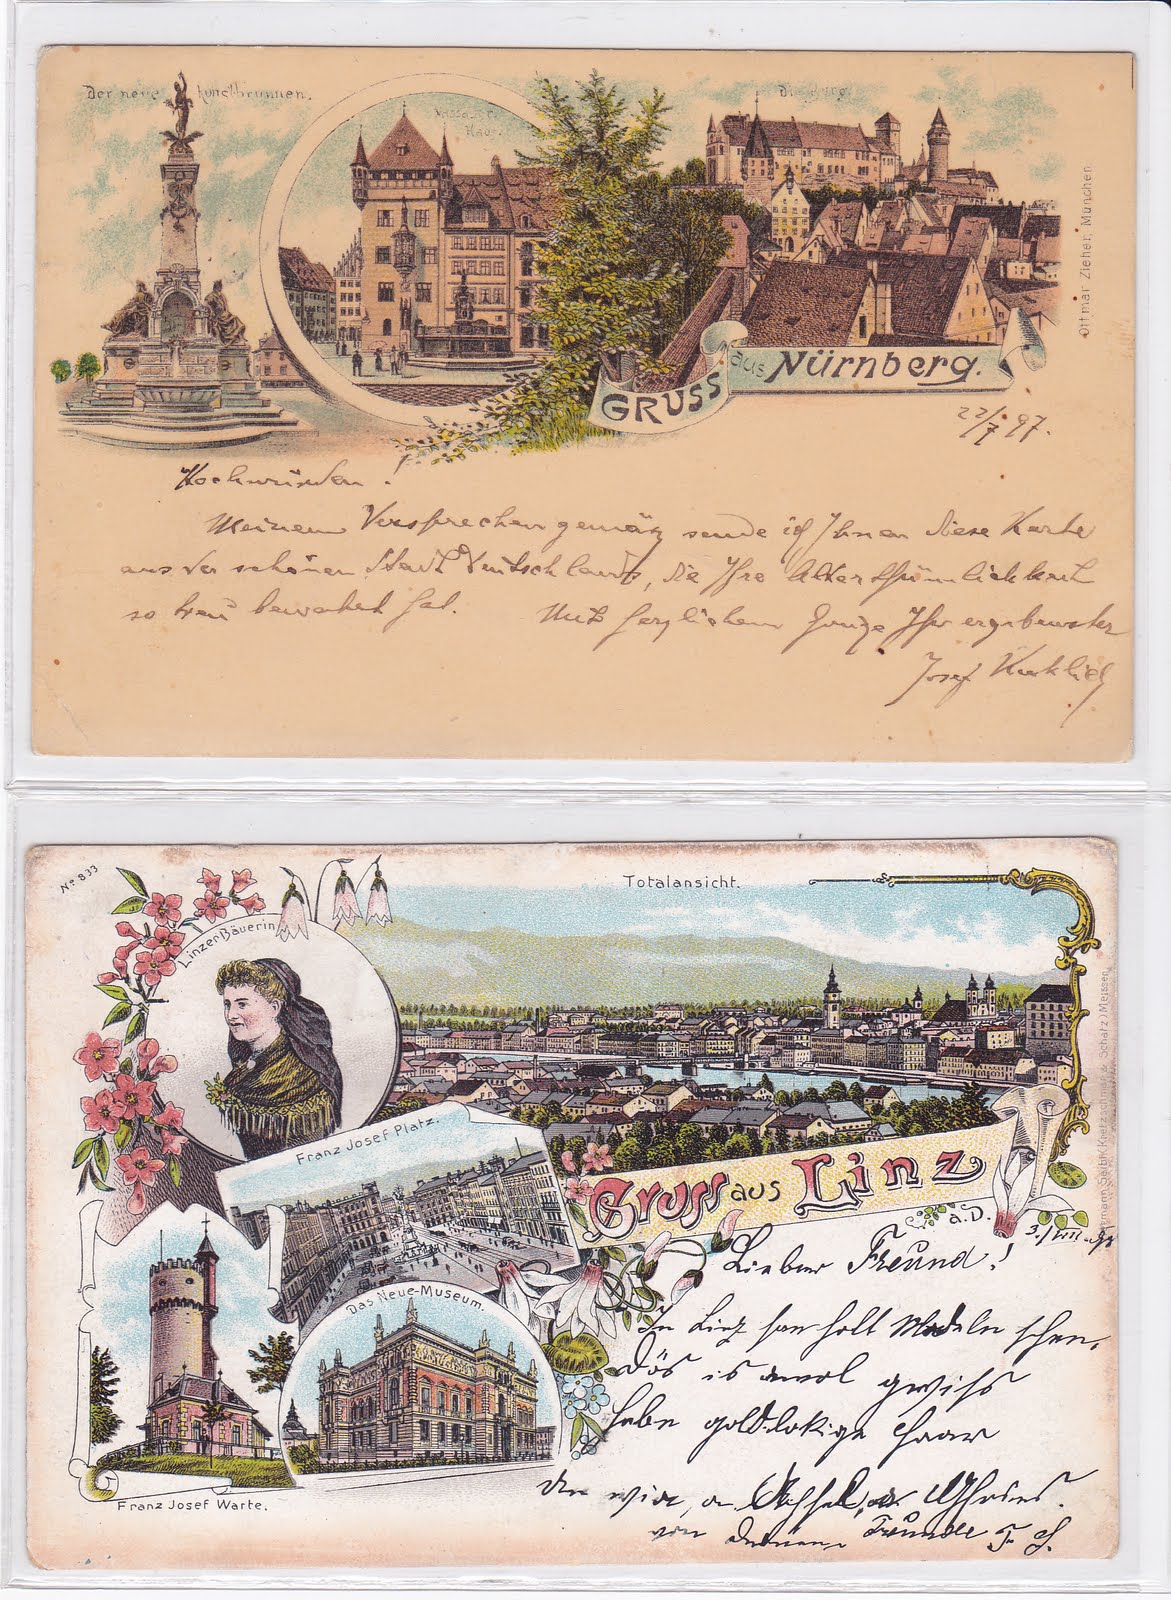 Der neue Kunstbrunnen.
Nassauer
Haus.
Die Burg.
Ottmar Zieher, München
GRUSS aus Nürnberg.
22/7 97.
Hochwürden!
Meinem Versprechen gemäß sende ich Ihnen diese Karte
aus der schönen Stadt Deutschlands, die Ihre Alterthümlichkeit
so treu bewahrt hat. Mit herzlichem Ihr ergebenster
Josef
No 833
Linzer Bäuerin
Totalansicht.
Franz Josef Platz.
Gruss aus Linz
a.D.
3./VII. 98
Das Neue-Museum.
Franz Josef Warte.
Kretzschmar & Schatz) Meissen
Lieber Freund!
In Linz san halt Madeln schen,
Dös is amol gewiss
habe goldlokige Haar
von Deinem Freunde F. S.